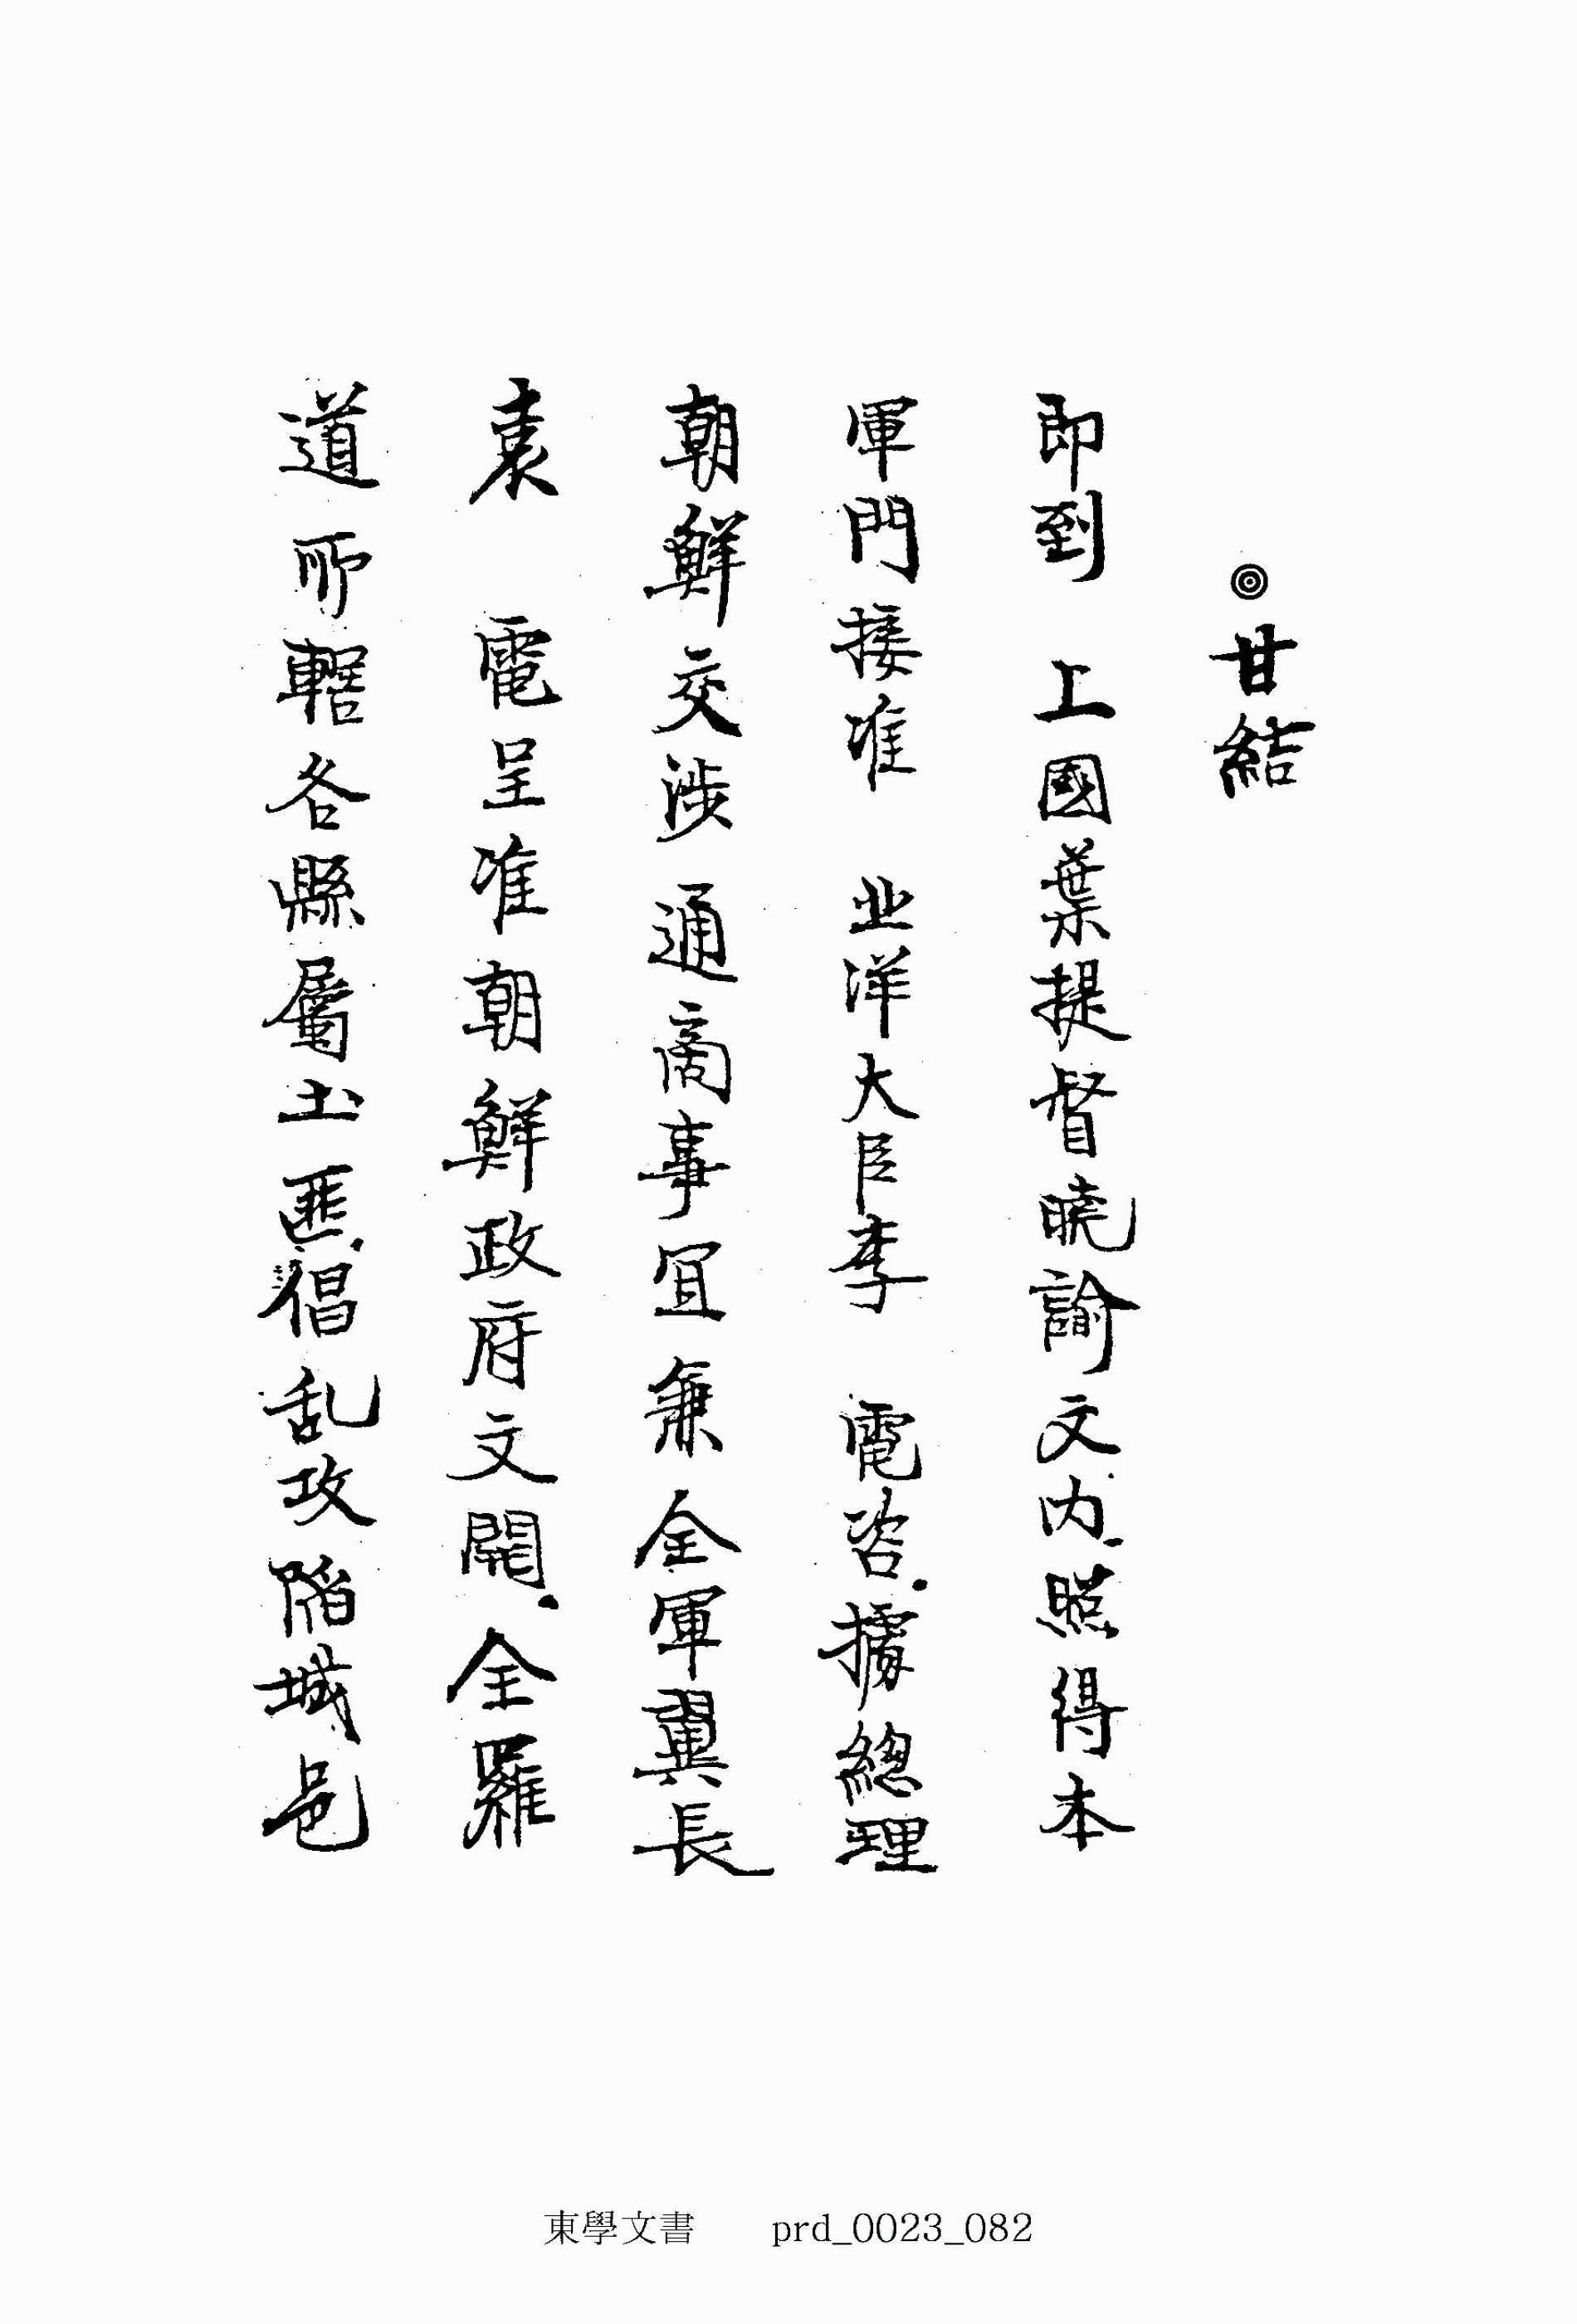 ◎甘結
即到 上國葉提督曉諭文内.照得本
軍門接准 北洋大臣李 電咨.據總理
朝鮮交涉通商事宜兼全軍翼長
袁 電呈准朝鮮政府文開.全羅
道所轄各縣屬土匪.倡乱攻陷城邑
東學文書 prd_0023_082